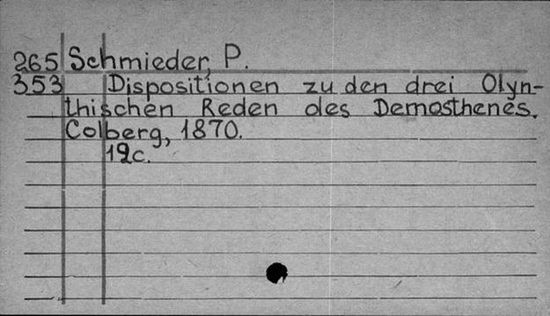 265 Schmieder, P.
353 Dispositionen zu den drei Olyn-
thischen Reden des Demosthenes.
Colberg, 1870.
19c.